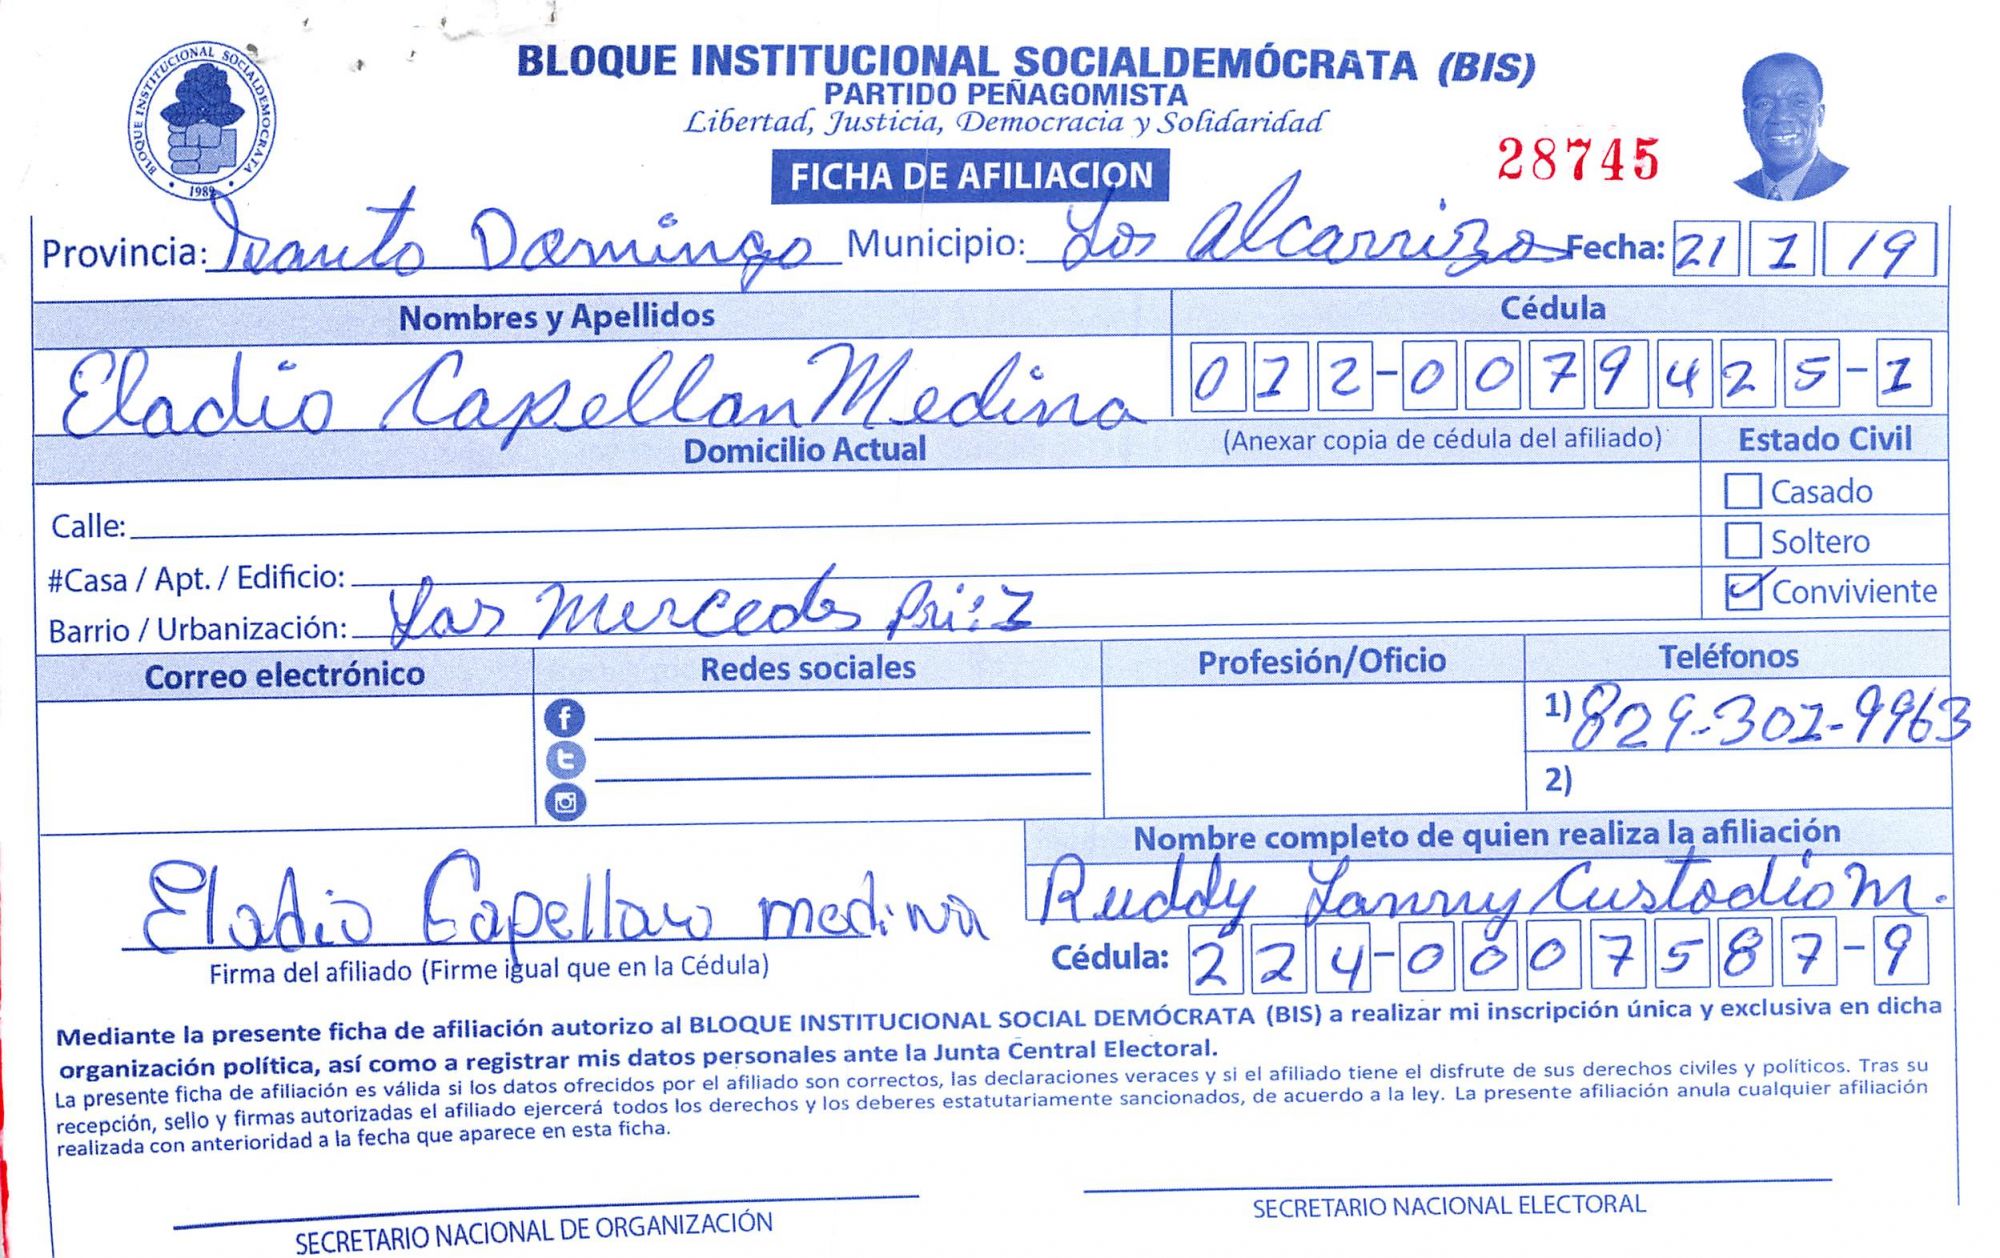 BLOQUE INSTITUCIONAL SOCIALDEMÓCRATA (BIS)
PARTIDO PEÑAGOMISTA
Libertad, Justicia, Democracia y Solidaridad
BLOQUE INSTITUCIONAL SOCIALDEMOCRATA
1989
FICHA DE AFILIACION
28745
Provincia: Santo Domingo Municipio: Los Alcarrizos Fecha: 21 1 19
Nombres y Apellidos Cédula
Eladio Capellan Medina 012-0079425-1
Domicilio Actual (Anexar copia de cédula del afiliado) Estado Civil
Casado
Calle:
Soltero
#Casa / Apt. / Edificio:
Conviviente
Barrio / Urbanización: Las Mercedes
Correo electrónico Redes sociales Profesión/Oficio Teléfonos
1) 829-302-9963
2)
Nombre completo de quien realiza la afiliación
Ruddy Lanny Custodio M.
Eladio Capellan medina
Cédula: 224-0007587-9
Firma del afiliado (Firme igual que en la Cédula)
Mediante la presente ficha de afiliación autorizo al BLOQUE INSTITUCIONAL SOCIAL DEMÓCRATA (BIS) a realizar mi inscripción única y exclusiva en dicha
organización política, así como a registrar mis datos personales ante la Junta Central Electoral.
La presente ficha de afiliación es válida si los datos ofrecidos por el afiliado son correctos, las declaraciones veraces y si el afiliado tiene el disfrute de sus derechos civiles y políticos. Tras su
recepción, sello y firmas autorizadas el afiliado ejercerá todos los derechos y los deberes estatutariamente sancionados, de acuerdo a la ley. La presente afiliación anula cualquier afiliación
realizada con anterioridad a la fecha que aparece en esta ficha.
SECRETARIO NACIONAL DE ORGANIZACIÓN SECRETARIO NACIONAL ELECTORAL